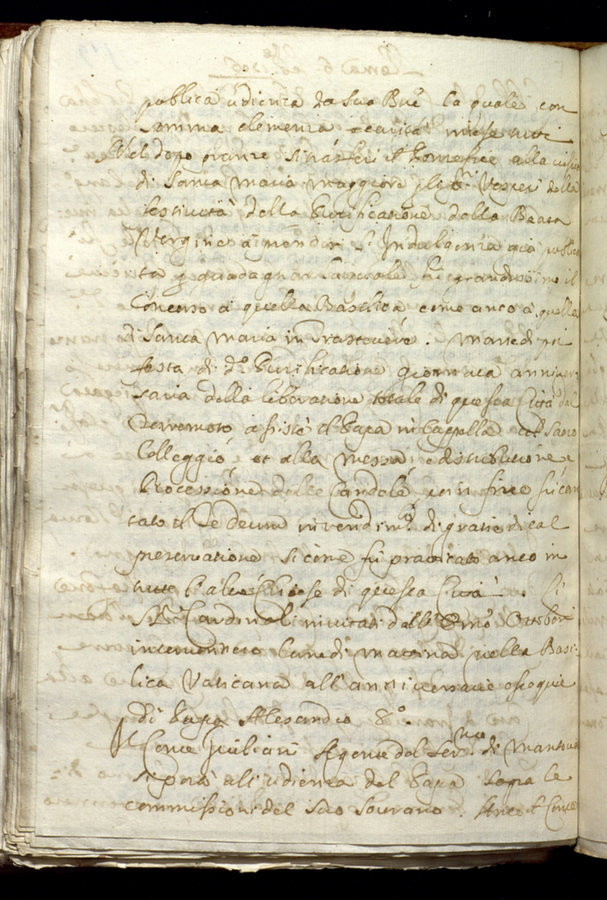 Roma 6 Feb.º 1706
publica udienza da Sua Bne la quale con
somma clemenza e carità
dopo pranzo si trasferì il Pontefice alla
di Santa Maria Maggiore Vesperi della
festività della Purificatione della Beata
Vergine Indulgenza
ta p guadagnar fu grandissimo il
Concorso a quella Basilica come anco à quella
di Santa Maria in Trastevere. Martedi poi
festa di dª Purificatione giornata anniver
saria della liberatione totale di questa Città dal
Terremoto assistè il Papa in Cappella col Sacro
Colleggio et alla Messa e distributione e
Processione delle Candele, et in fine fu can
tato il Te deum in rendimº di gratie di tal
preservatione si come fu praticato anco in
tutte l'altre Chiese di questa Città. Li
SSri Cardinali invitati dall' Emo Ottoboni
intervennero lunedi matina nella Basi-
lica Vaticana all' anniversarie esequie
di Papa Alesandro 8º.
Il Conte Agente del Sermo di Mantova
si portò all' udienza del Papa sopra le
commissioni del Suo Sovrano. il Conte